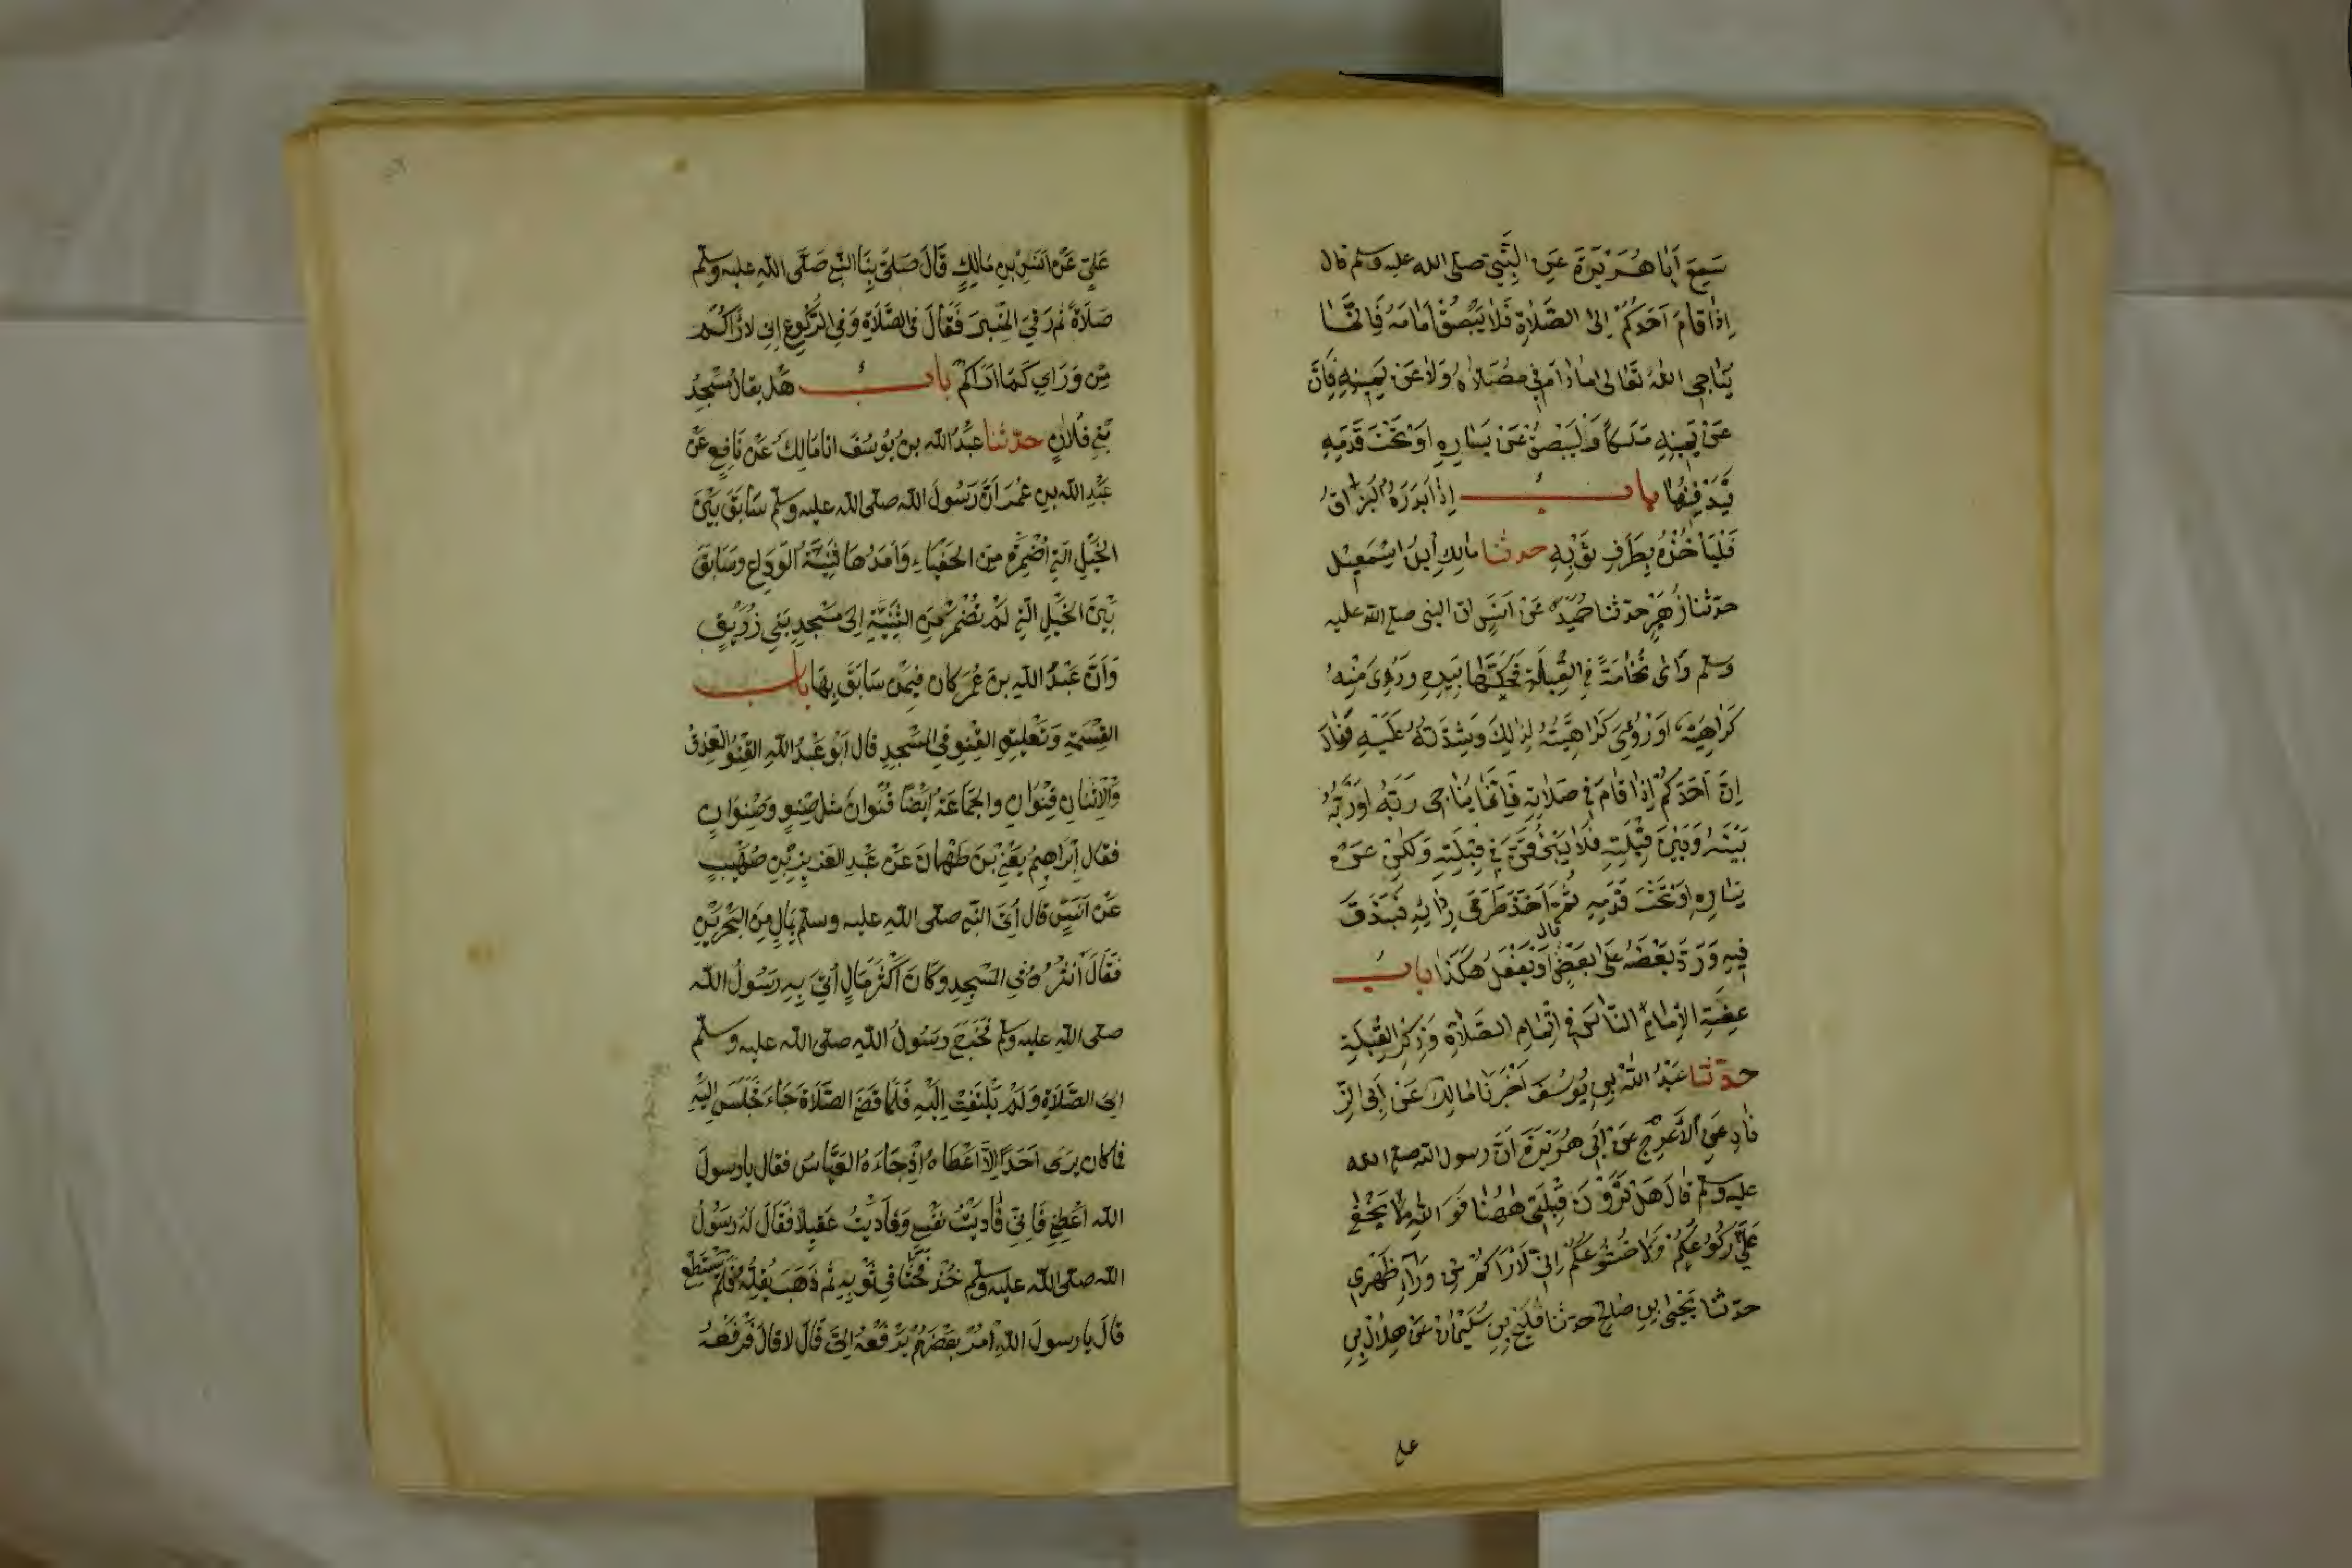 سَمِعَ اَبَا هُرَيْرَةَ عَنِ النَّبِيِّ صلى الله عليه وسلم قال
اِذَا قَامَ اَحَدُكُمْ اِلَى الصَّلَاةِ فَلَا يَبْصُقْ اَمَامَهُ فَاِنَّمَا
يُنَاجِي اللهَ تَعَالٰى مَا دَامَ فِي مُصَلَّاهُ وَلَا عَنْ يَمِيْنِهِ فَاِنَّ
عَنْ يَمِيْنِهِ مَلَكاً وَلْيَبْصُقْ عَنْ يَسَارِهِ اَوْ تَحْتَ قَدَمِهِ
يَدْفِنُهَا بابُ اِذَا بَدَرَهُ الْبُزَاقُ
فَلْيَاْخُذْهُ بِطَرَفِ ثَوْبِهِ حدثنا مالك اِبنُ اسْمٰعِيْل
حدّثنا زُهَيْر حدّثنا حُمَيْدٌ عَنْ اَنَسٍ ان النبى صلع الله عليه
وسلم رَاٰى نُخَامَةً فِي القِبْلَةِ فَحَكَّهَا بِيَدِهِ وَرُؤِىَ مِنْهُ
كَرَاهِيَة اَوْ رُؤِىَ كَرَاهِيَّتُهُ لِذٰلِكَ وَشِدَّتُهُ عَلَيْهِ فَقَالَ
اِنَّ اَحَدَكُمْ اِذَا قَامَ فِي صَلَاتِهِ فَاِنَّمَا يُنَاجِى رَبَّهُ اَوْ رَبُّهُ
بَيْنَهُ وَبَيْنَ قِبْلَتِهِ فَلَا يَبْزُقَنَّ فِي قِبْلَتِهِ وَلٰكِنْ عَنْ
يَسَارِهِ اَوْ تَحْتَ قَدَمِهِ ثُمَّ اَخَذَ طَرَفَ رِدَائِهِ فَبَزَقَ
فِيْهِ وَرَدَّ بَعْضَهُ عَلٰى بَعْضٍ قال اَوْ يَفْعَلُ هٰكَذَا بابُ
عِظَةِ الْاِمَامِ النَّاسَ فِي اِتْمَامِ الصَّلَاةِ وَذِكْرِ الْقِبْلَةِ
حدّثنا عَبْدُ اللهِ بن يُوْسُفَ اَخْبَرَنَا مَالِكٌ عَنْ اَبِى الزِّ
نَادِ عَنِ الْاَعْرَجِ عَنْ اَبِي هُرَيْرَةَ اَنَّ رسول الله صلع الله
عليه وسلم قَالَ هَلْ تَرَوْنَ قِبْلَتِي هٰهُنَا فَوَ اللهِ مَا يَخْفٰى
عَلَيَّ رُكُوْعُكُمْ وَلَا خُشُوْعُكُمْ اِنِّيْ لَاَرَاكُمْ مِنْ وَرَاءِ ظَهْرِي
حدّثنا يَحْيٰى بن صَالِح حدّثنا فُلَيْح بن سُلَيْمَان عَنْ هِلَالِ بن
علي
عَلِيٍّ عَنْ اَنَسِ بنِ مَالِكٍ قَالَ صَلَّى بِنَا النَّبِيُّ صَلَّى اللهِ عليه وسلّم
صَلَاةً ثُمَّ رَقِيَ المِنْبَرَ فَقَالَ فِى الصَّلَاةِ وَفِي الرُّكُوْعِ اِنِي لَاَرَاكُمْ
مِنْ وَرَايِ كَمَا اَرَاكُمْ بابُ هَلْ يقالُ مَسْجِدُ
بَنِي فُلَانٍ حدّثنا عَبْدُ الله بن يُوْسُفَ انا مَالِكٌ عَنْ نَافِعٍ عَنْ
عَبْدِ الله بن عُمَرَ اَنَّ رَسُولَ الله صلّى الله عليه وسلّم سَابَقَ بَيْنَ
الخَيْلِ الَّتِي اُضْمِرَتْ مِنَ الحَفْيَاءِ وَاَمَدُهَا ثَنِيَّةُ الوَدَاعِ وَسَابَقَ
بَيْنَ الخَيْلِ الَّتِي لَمْ تُضْمَرْ مِنَ الثَّنِيَّةِ اِلَى مَسْجِدِ بَنِي زُرَيْقٍ
وَاَنَّ عَبْدَ اللهِ بنَ عُمَرَ كان فِيْمَنْ سَابَقَ بِهَا باب
القِسْمَةِ وَتَعْلِيْقِ القِنْوِ فِي المَسْجِدِ قال اَبُو عَبْدُ اللهِ القِنْوُ العِذْقُ
وَالْاِثْنَانِ قِنْوَانِ والجَمَاعَةُ اَيْضًا قِنْوَانٌ مثل صِنْوٍ وَصِنْوَانٍ
فقال اِبْرَاهِيْمُ يَعْنِي بْنَ طَهْمَانَ عَنْ عَبْدِ العَزِيْزِ بْنِ صُهَيْبٍ
عَنْ اَنَسٍ قال اُتِيَ النَّبِي صلّى اللهِ عليه وسلّم بِمَالٍ مِنَ البَحْرَيْنِ
فَقَالَ اُنْثُرُوْهُ فِي المَسْجِدِ وَكَانَ اَكْثَرَ مَالٍ اُتِيَ بِهِ رَسُوْلُ اللهِ
صلّى اللهِ عليه وسلّم فَخَرَجَ رَسُولُ اللهِ صلّى الله عليه وسلّم
اِلَى الصَّلَاةِ وَلَمْ يَلْتَفِتْ اِلَيْهِ فَلَمَّا قَضَى الصَّلَاةَ جَاءَ فَجَلَسَ اِلَيْهِ
فما كان يَرَى اَحَدًا اِلَّا اَعْطَاهُ اِذْ جَاءَهُ العَبَّاسُ فقال يا رسولَ
الله اَعْطِنِي فَاِنِّي فَادَيْتُ نَفْسِي وَفَادَيْتُ عَقِيلًا فَقَالَ لَهُ رَسُوْلُ
الله صلّى الله عليه وسلّم خُذْ فَحَثَا فِي ثَوْبِهِ ثُمَّ ذَهَبَ يُقِلُّهُ فَلَمْ يَسْتَطِعْ
قَالَ يا رسولَ اللهِ اُمُرْ بَعْضَهُمْ يَرْفَعْهُ اِلَيَّ قَالَ لا قال فَرْفَعْهُ